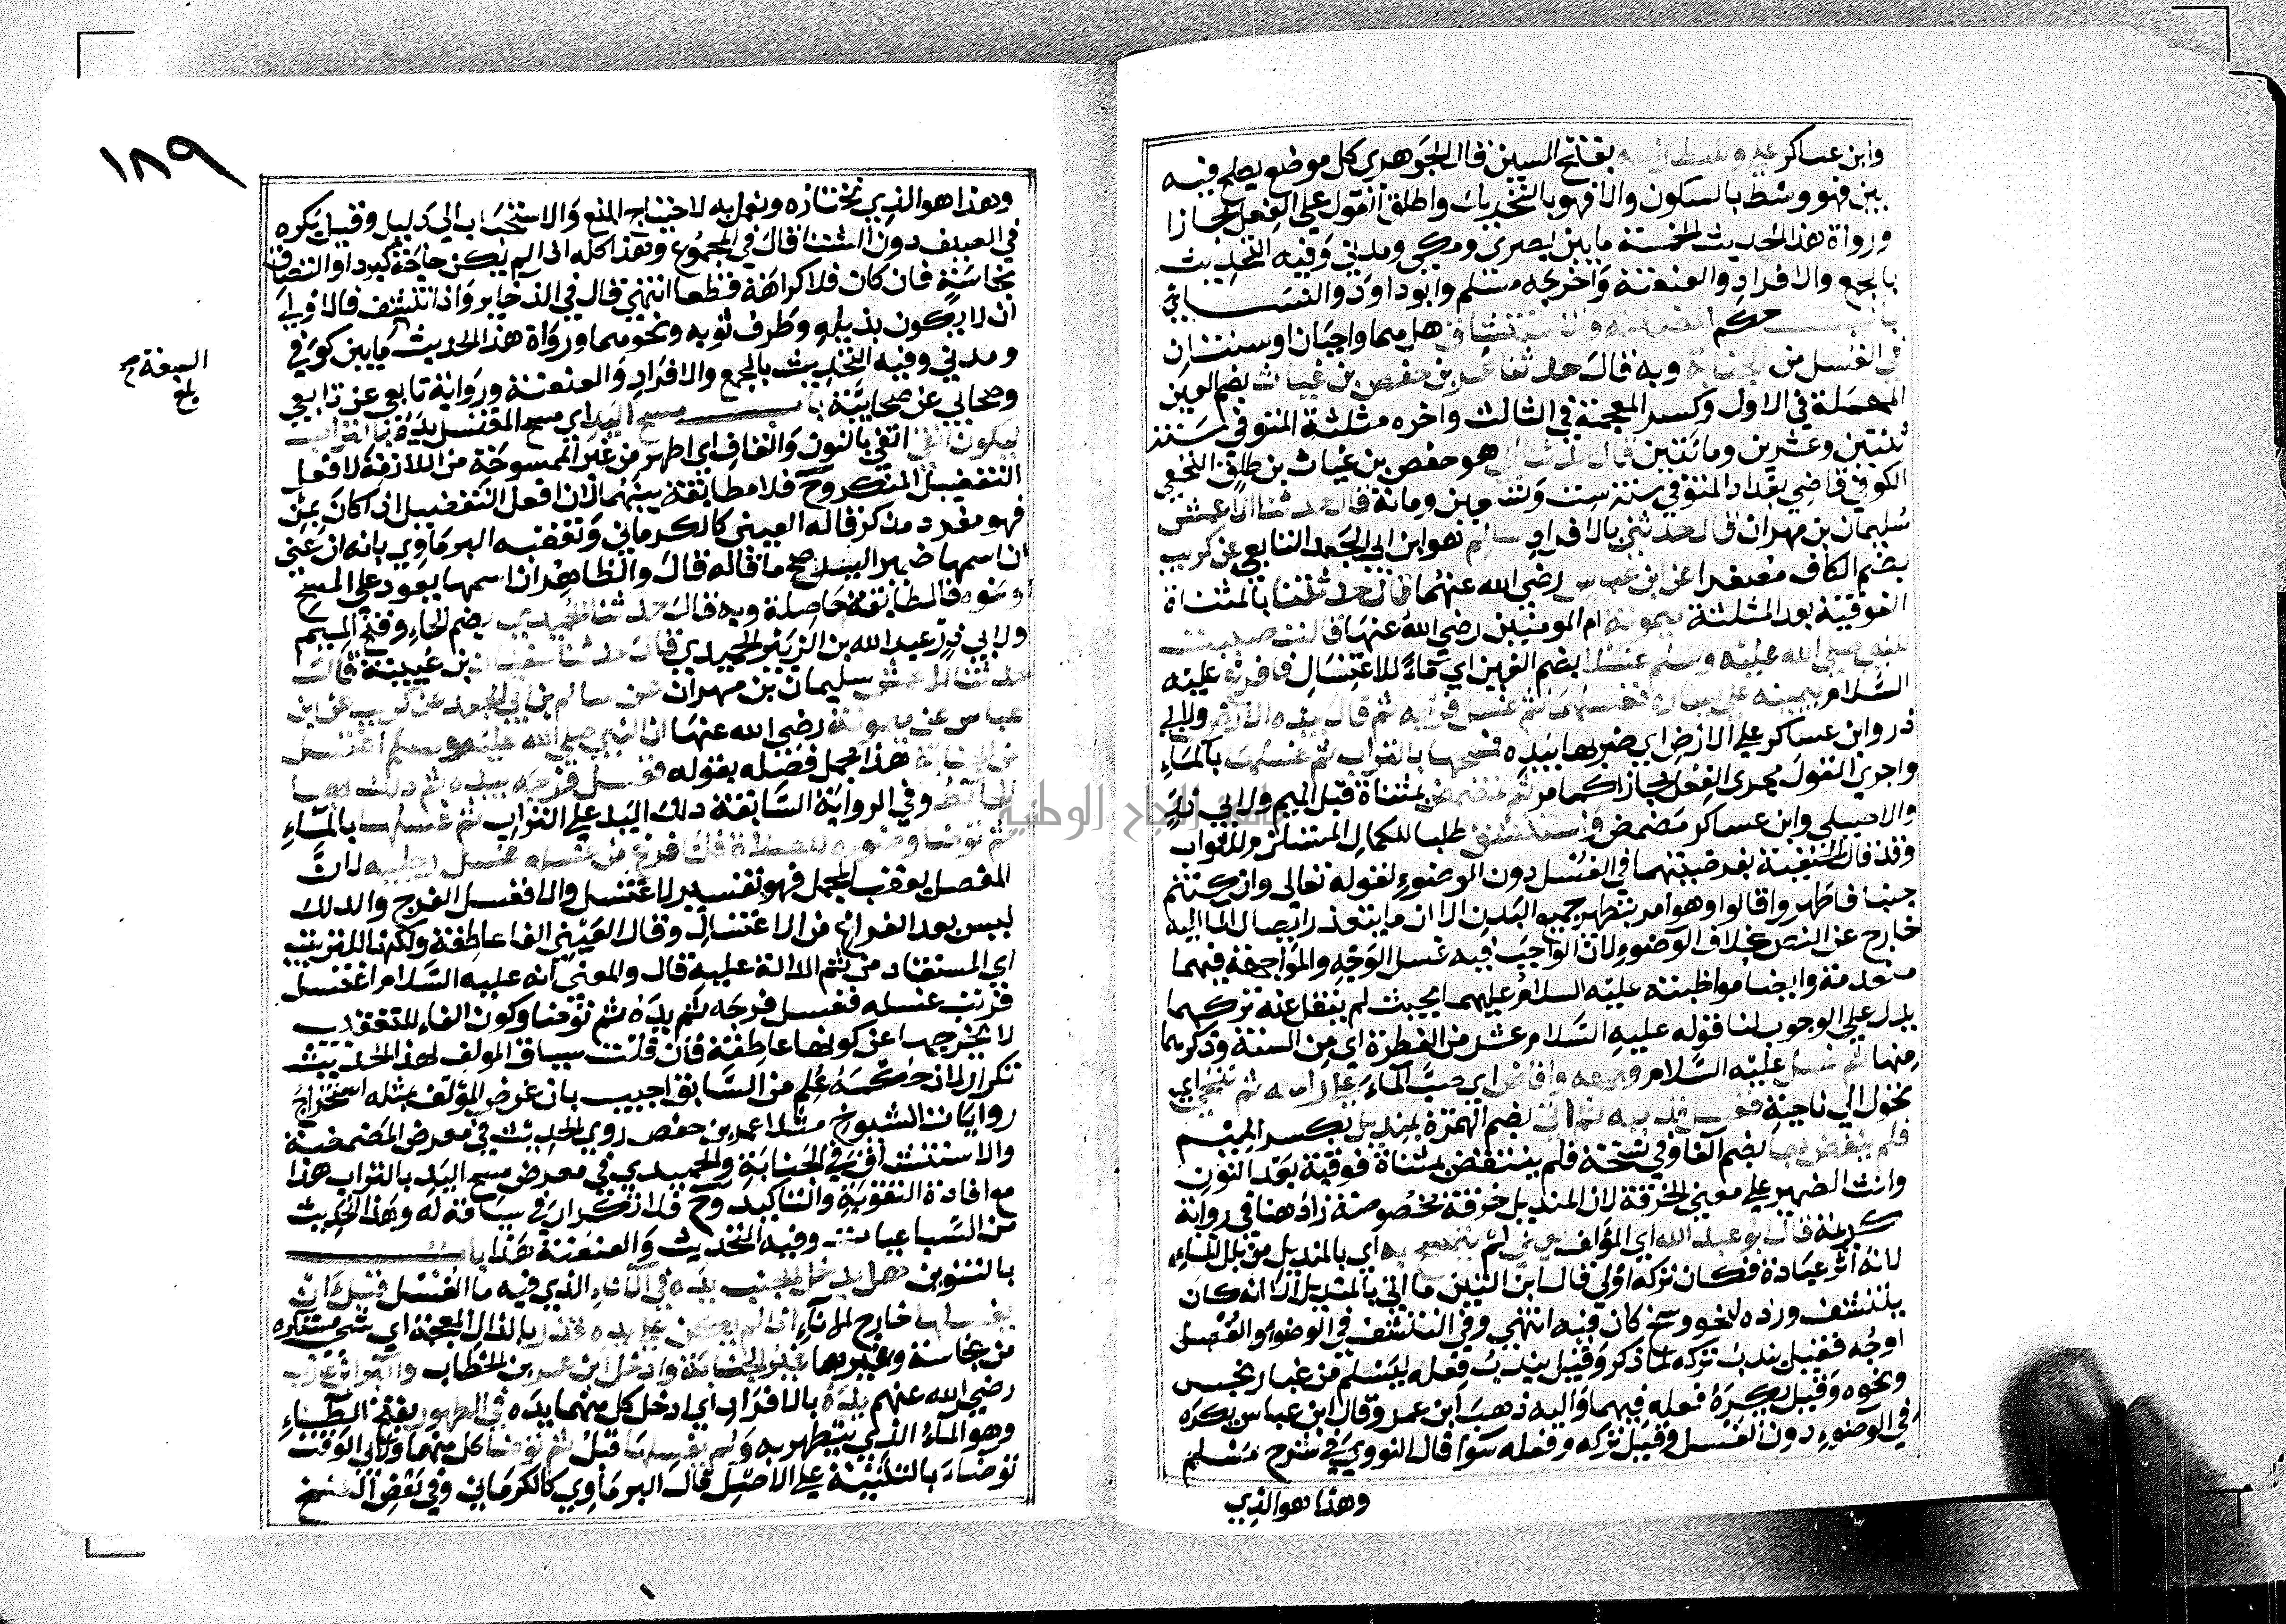 وابن عساكر على وسط راسه بفتح السين قال الجوهري كل موضع يصلح فيه
بين فهو وسط بالسكون والا فهو بالتحريك واطلق القول على الفعل مجازا
ورواة هذا الحديث الخمسة ما بين بصري ومكي ومدني وفيه التحديث
بالجمع والافراد والعنعنة واخرجه مسلم وابو داود والنسائي
باب حكم المضمضة والاستنشاق هل هما واجبان او سنتان
في الغسل من الجنابة وبه قال حدثنا عمر بن حفص بن غياث بضم العين
المهملة في الاول وكسر المعجمة في الثالث واخره مثلثة المتوفي سنة
ثنتين وعشرين ومائتين قال حدثنا ابي هو حفص بن غياث بن طلق النخعي
الكوفي قاضي بغداد المتوفي سنة ست وتسعين ومائة قال حدثنا الاعمش
سليمان بن مهران قال حدثني بالافراد سالم هو ابن ابي الجعد التابعي عن كريب
بضم الكاف مصغرا عن ابن عباس رضي الله عنهما قال حدثتنا بالمثناة
الفوقية بعد المثلثة ميمونة ام المومنين رضي الله عنها قالت صببت
للنبي صلى الله عليه وسلم غسلا بضم الغين اي ماء للاغتسال فافرغ عليه
السلام بيمينه على يساره فغسلهما ثم غسل فرجه ثم قال بيده الارض ولابي
ذر وابن عساكر على الارض اي ضربها بيده فمسحها بالتراب ثم غسلها بالماء
واجري القول مجرى الفعل مجازا كما مر ثم تمضمض بمثناة قبل الميم ولابي ذر
والاصيلي وابن عساكر مضمض واستنشق طلبا للكمال المستلزم للثواب
وقد قال الحنفية بفرضيتهما في الغسل دون الوضوء لقوله تعالى وان كنتم
جنبا فاطهروا قالوا وهو امر بتطهير جميع البدن الا ان ما يتعذر ايصال الماء اليه
خارج عن النص بخلاف الوضوء لان الواجب فيه غسل الوجه والمواجهة فيهما
منعدمة وايضا مواظبته عليه السلام عليهما بحيث لم ينقل عنه تركهما
يدل على الوجوب لنا قوله عليه السلام عشر من الفطرة اي من السنة وذكرهما
منها ثم غسل عليه السلام وجهه وافاض اي صب الماء على راسه ثم تنحى اي
تحول الى ناحية فغسل قدميه ثم اتي بضم الهمزة بمنديل بكسر الميم
فلم ينفض بها بضم الفا وفي نسخة فلم ينتفض بمثناة فوقية بعد النون
وانث الضمير على معنى الخرقة لان المنديل خرقة مخصوصة زاد هنا في رواية
كريمة قال ابو عبد الله اي المؤلف يعني لم يتمسح به اي بالمنديل من بلل الماء
لانه اثر عبادة فكان تركه اولي قال ابن التين ما اتي بالمنديل الا انه كان
يتنشف ورده لنحو وسخ كان فيه انتهي وفي التنشف في الوضوء والغسل
اوجه فقيل يندب تركه لما ذكر وقيل يندب فعله ليسلم من غبار نجس
ونحوه وقيل يكره فعله فيهما واليه ذهب ابن عمر وقال ابن عباس يكره
في الوضوء دون الغسل وقيل تركه وفعله سوا قال النووي في شرح مسلم
وهذا هو الذي
١٨٩
وهذا هو الذي نختاره ونعمل به لاحتياج المنع والاستحباب الى دليل وقيل يكره
في الصيف دون الشتا قال في المجموع وهذا كله اذا لم يكن حاجة كبرد او التصاق
نجاسة فان كان فلا كراهة قطعا انتهي قال في الذخاير واذا تنشف فالاولي
ان لا يكون بذيله وطرف ثوبه ونحوهما ورواة هذا الحديث ما بين كوفي
ومدني وفيه التحديث بالجمع والافراد والعنعنة ورواية تابعي عن تابعي
وصحابي عن صحابية باب مسح اليد اي مسح المغتسل يده بالتراب
ليكون انقي بالنون والقاف اي اطهر من غير الممسوحة من اللازمة لافعل
التفضيل المنكر وح فلا مطابقة بينهما لان افعل التفضيل اذا كان بمن
فهو مفرد مذكر قاله العيني كالكرماني وتعقبه البرماوي بانه ان عني
ان اسمها ضمير اليد صح ما قاله قال والظاهر ان اسمها يعود على المسح
ونحوه فالمطابقة حاصلة وبه قال حدثنا الحميدي بضم الحاء وفتح الميم
ولابي ذر عبد الله بن الزبير الحميدي قال حدثنا سفيان بن عيينة قال
حدثنا الاعمش سليمان بن مهران عن سالم بن ابي الجعد عن كريب عن ابن
عباس عن ميمونة رضي الله عنها ان النبي صلى الله عليه وسلم اغتسل
من الجنابة هذا مجمل فصله بقوله فغسل فرجه بيده ثم دلك بها
الحائط وفي الرواية السابقة دلك اليد على التراب ثم غسلها بالماء
ثم توضا وضوءه للصلاة فلما فرغ من غسله غسل رجليه لان
المفصل يعقب المجمل فهو تفسير لاغتسل والا فغسل الفرج والدلك
ليس بعد الفراغ من الاغتسال وقال العيني الفا عاطفة ولكنها للترتيب
اي المستفاد من ثم الدالة عليه قال والمعنى انه عليه السلام اغتسل
فرتب غسله فغسل فرجه ثم يده ثم توضا وكون الفاء للتعقيب
لا يخرجها عن كونها عاطفة فان قلت سياق المولف لهذا الحديث
تكرار لان حكمه علم من السابق اجيب بان غرض المؤلف بمثله استخراج
روايات الشيوخ مثلا عمر بن حفص روي الحديث في معرض المضمضة
والاستنشاق في الجنابة والحميدي في معرض مسح اليد بالتراب هذا
مع افادة التقوية والتاكيد وح فلا تكرار في سياقه له وهذا الحديث
من السباعيات وفيه التحديث والعنعنة هذا باب
بالتنوين هل يدخل الجنب يده في الاناء الذي فيه ما الغسل قبل ان
يغسلها خارج الاناء اذا لم يكن على يده قذر بالذال المعجمة اي شي مستكره
من نجاسة وغيرها غير الجنابة وادخل ابن عمر بن الخطاب والبراء بن عازب
رضي الله عنهم يده بالافراد اي ادخل كل منهما يده في الطهور بفتح الطاء
وهو الماء الذي يتطهر به ولم يغسلها قبل ثم توضا كل منهما ولابي الوقت
توضاء بالتثنية على الاصل قال البرماوي كالكرماني وفي بعض النسخ
بلغ